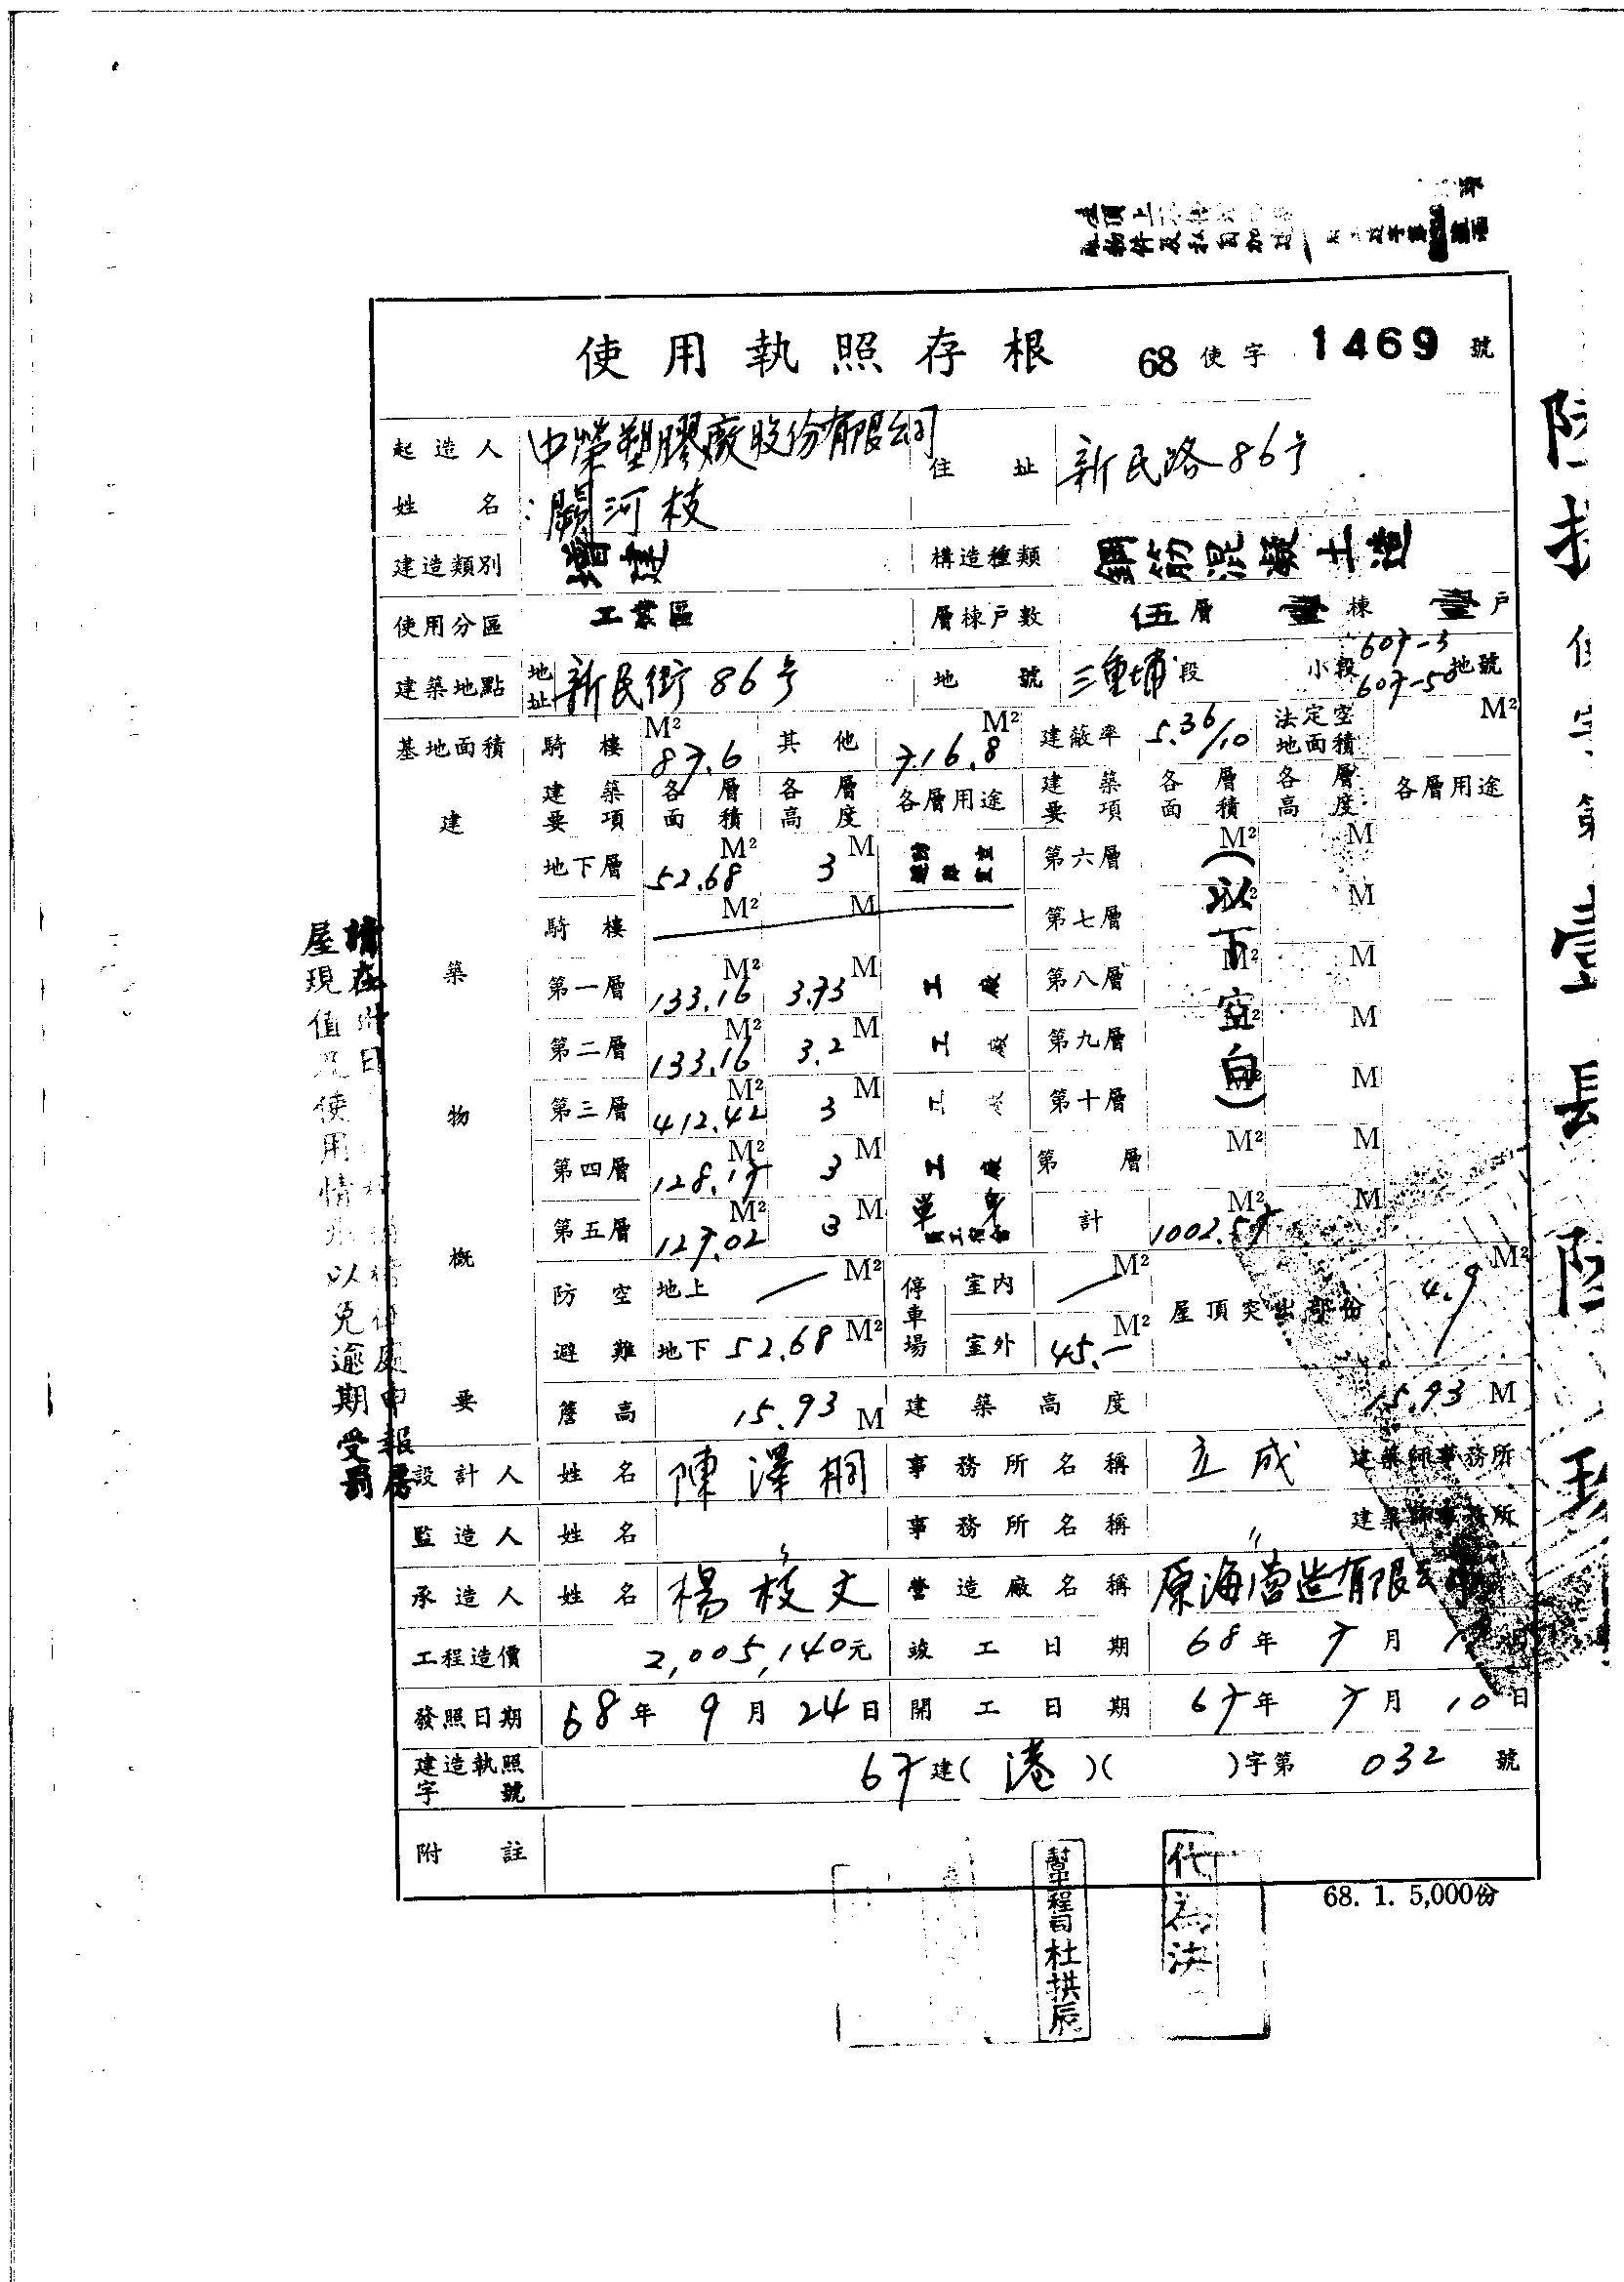 使用執照存根 68使字 1469 號
起造人姓名 中榮塑膠廠股份有限公司 住址 新民路86号
闕河枝
建造類別 增建 構造種類 鋼筋混凝土造
使用分區 工業區 層棟戶數 伍層 壹棟 壹戶
建築地點 地址 新民街86号 地號 三重埔段 小段 607-3 607-50 地號
基地面積 騎樓 87.6 M² 其他 716.8 M² 建蔽率 5.36/10 法定空地面積 M²
建築物概要 建築要項 各層面積 各層高度 各層用途 建築要項 各層面積 各層高度 各層用途
地下層 52.68 M² 3 M 第六層 M² M
騎樓 M² M 第七層 M² M
第一層 133.16 M² 3.73 M 工廠 第八層 M² M
第二層 133.16 M² 3.2 M 工廠 第九層 M² M
第三層 412.42 M² 3 M 工廠 第十層 M² M
第四層 128.17 M² 3 M 工廠 第 層 M² M
第五層 127.02 M² 3 M 單身 計 1002.57 M² M
(以下空白)
防空避難 地上 — M² 停車場 室內 — M² 屋頂突出部份 4.9 M²
地下 52.68 M² 室外 45.— M²
簷高 15.93 M 建築高度 15.93 M
設計人 姓名 陳澤桐 事務所名稱 立成 建築師事務所
監造人 姓名 〃 事務所名稱 〃 建築師事務所
承造人 姓名 楊枝文 營造廠名稱 原海營造有限
工程造價 2,005,140元 竣工日期 68年 7月 日
發照日期 68年 9月 24日 開工日期 67年 7月 10日
建造執照字號 67建(港)( )字第 032 號
附註
68. 1. 5,000份
幫工程司杜拱辰
代為決